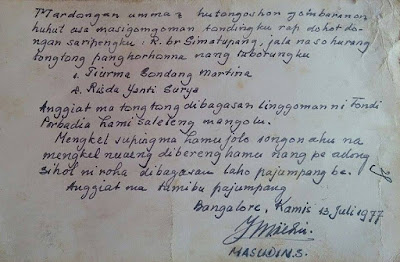 Mardongan umma hutongoshon gombaranon
huhut asa masigomgoman tondingku rap dohot do-
ngan saripengku: R. br Simatupang, jala naso hurang
tongtong pangkorhonna nang taborungku
1. Tiurma Sondang Martina
2. Risda Yanti Surya
Anggiat ma tongtong dibagasan linggoman ni Tondi
Porbadia hami saleleng mangolu.
Mengkel supingma hamu jolo songon ahu na
mengkel nuaeng dibereng hamu nang pe adong
sihol ni roha dibagasan laho pajumpang be.
Anggiat ma tumibu pajumpang
Bangalore, Kamis 13 Juli 1977
MASUDIN.S.